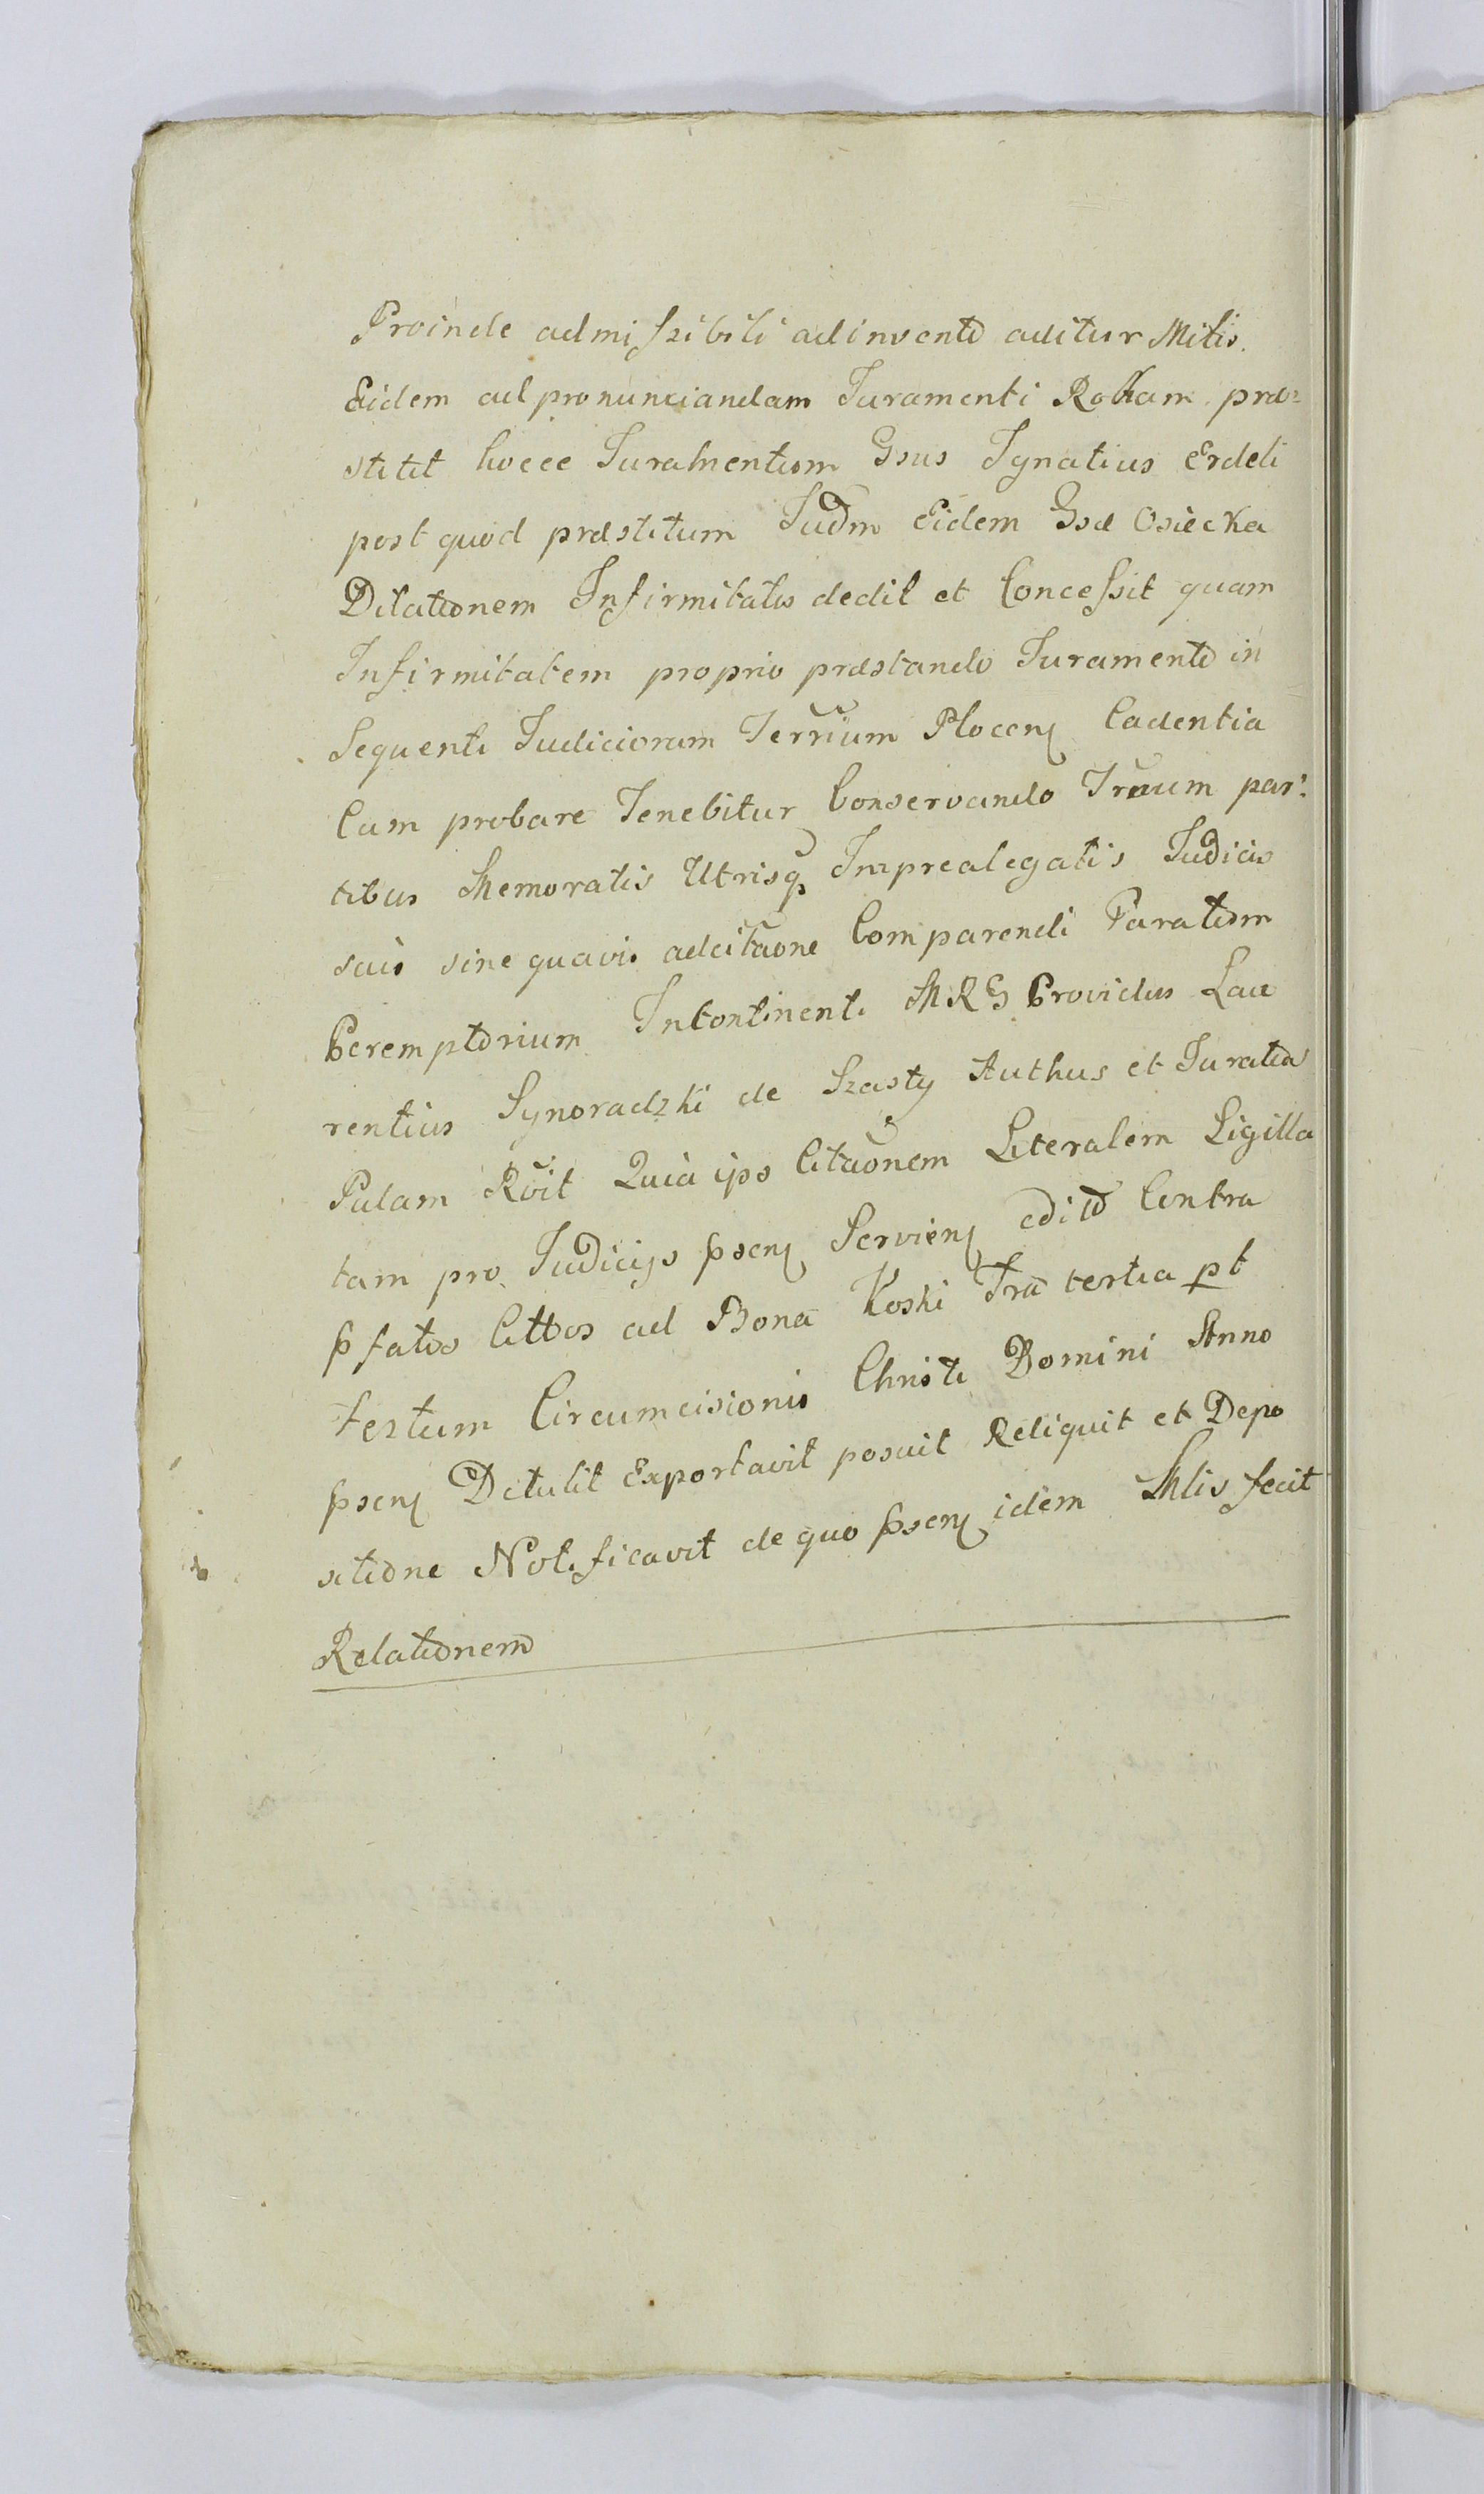 Proinde admiſsibili adinvento aditur Mltis.
Eidem ad pronunciandam Juramenti Rotham præ=
stitit hocce Juramentum Gsus Ignatius Erdeli
post quod præstitum Judm Eidem Gsæ Osiecka
Dilationem Infirmitatis dedit et Conceſsit quam
Infirmitatem proprio præstando Juramento in
Sequenti Judiciorum Terrium Plocen Cadentia
Cum probare Tenebitur Conservando Trnum par:
tibus Memoratis Utrisq Inprealegatis Judiciis
suis sine quavis adcitaone Comparendi Paratum
Peremptorium Incontinenti MRG Providus Lau
rentius Synoradzki de Szasty Authus et Juratus
Palam Rvit Quia ips Citaonem Literalem Sigilla
tam pro Judicijs pscn Servien edito Contra
pfatos Cittos ad Bona Koski Fra tertia pt
festum Circumcisionis Christi Domini Anno
pscn Detulit Exportavit posuit Reliquit et Depo
sitione Notificavit de quo pscn idem Mlis fecit
Relationem